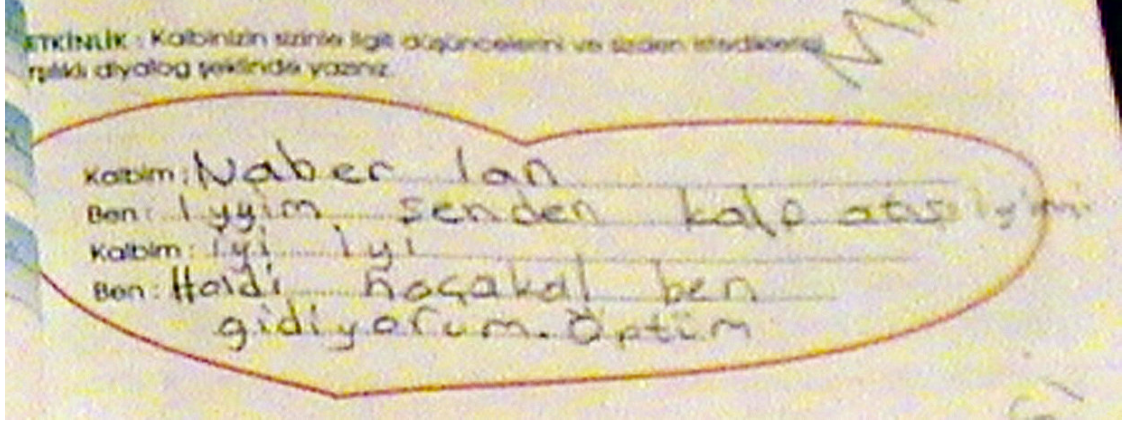 ETKİNLİK : Kalbinizin sizinle ilgili düşüncelerini ve sizden istediklerini
rşılıklı diyalog şeklinde yazınız.
Kalbim : Naber lan
Ben : Iyyim senden kalp atışı iyimi
Kalbim : iyi iyi
Ben : Haidi hoçakal ben
gidiyorum. Öptüm